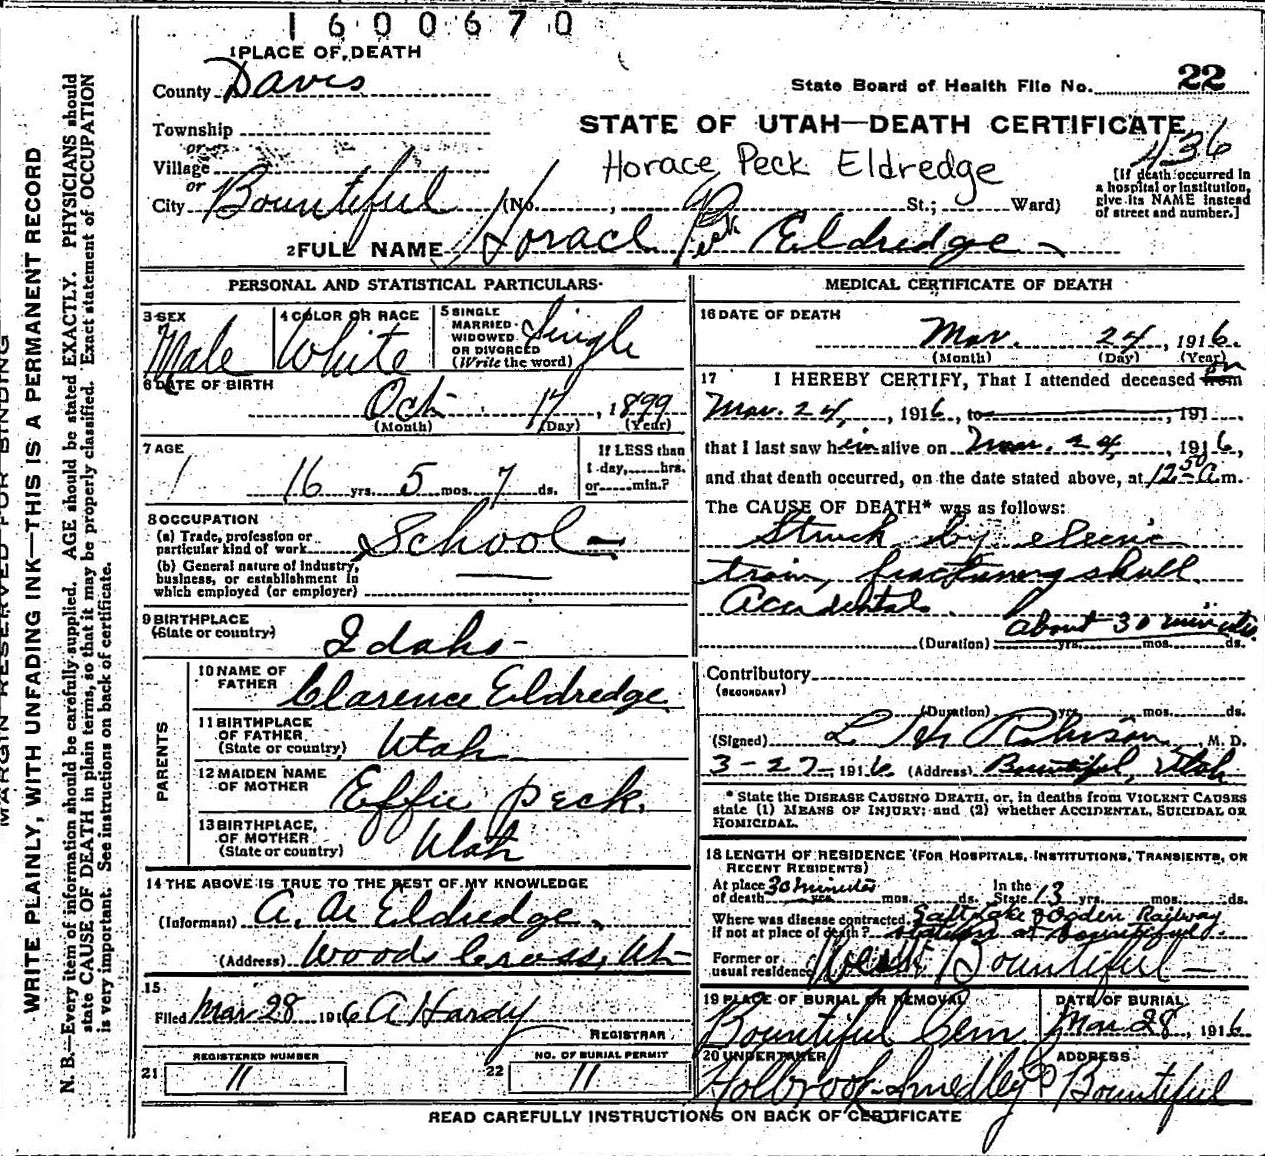 1600670
1 PLACE OF DEATH
County Davis
State Board of Health File No. 22
Township
or
Village
or
City Bountiful (No. , St.; Ward)
STATE OF UTAH—DEATH CERTIFICATE
436
Horace Peck Eldredge
[If death occurred in
a hospital or institution,
give its NAME instead
of street and number.]
2 FULL NAME Horace Peck Eldredge
PERSONAL AND STATISTICAL PARTICULARS
3 SEX
Male
4 COLOR OR RACE
White
5 SINGLE
MARRIED
WIDOWED
OR DIVORCED
(Write the word)
Single
6 DATE OF BIRTH
Oct 17, 1899
(Month) (Day) (Year)
7 AGE
16 yrs. 5 mos. 7 ds.
If LESS than
1 day, hrs.
or min.?
8 OCCUPATION
(a) Trade, profession or
particular kind of work School
(b) General nature of industry,
business, or establishment in
which employed (or employer)
9 BIRTHPLACE
(State or country)
Idaho
PARENTS
10 NAME OF
FATHER Clarence Eldredge
11 BIRTHPLACE
OF FATHER
(State or country) Utah
12 MAIDEN NAME
OF MOTHER Effie Peck
13 BIRTHPLACE,
OF MOTHER
(State or country) Utah
14 THE ABOVE IS TRUE TO THE BEST OF MY KNOWLEDGE
(Informant) Eldredge
(Address) Woods Cross, Ut
15
Filed Mar 28 1916 A Hardy
REGISTRAR
21 REGISTERED NUMBER
11
22 NO. OF BURIAL PERMIT
11
MEDICAL CERTIFICATE OF DEATH
16 DATE OF DEATH
Mar. 24, 1916.
(Month) (Day) (Year)
17 I HEREBY CERTIFY, That I attended deceased from on
Mar. 24, 1916, to , 191
that I last saw him alive on Mar. 24, 1916,
and that death occurred, on the date stated above, at 12 50 A m.
The CAUSE OF DEATH* was as follows:
Struck by electric
train, fracturing skull
Accidental
about 30 minutes
(Duration) yrs. mos. ds.
Contributory
(SECONDARY)
(Duration) yrs. mos. ds.
(Signed) Robinson, M. D.
3-27-, 1916 (Address) Bountiful, Utah
* State the DISEASE CAUSING DEATH, or, in deaths from VIOLENT CAUSES
state (1) MEANS OF INJURY; and (2) whether ACCIDENTAL, SUICIDAL OR
HOMICIDAL.
18 LENGTH OF RESIDENCE (FOR HOSPITALS, INSTITUTIONS, TRANSIENTS, OR
RECENT RESIDENTS)
At place 30 minutes In the 13
of death yrs. mos. ds. State yrs. mos. ds.
Where was disease contracted, Salt Lake & Ogden Railway
If not at place of death? station at Bountiful.
Former or
usual residence West Bountiful
19 PLACE OF BURIAL OR REMOVAL
Bountiful Cem.
DATE OF BURIAL
Mar 28, 1916
20 UNDERTAKER
Holbrook-Smedley
ADDRESS
Bountiful
READ CAREFULLY INSTRUCTIONS ON BACK OF CERTIFICATE
MARGIN RESERVED FOR BINDING
WRITE PLAINLY, WITH UNFADING INK—THIS IS A PERMANENT RECORD
N. B.—Every item of information should be carefully supplied. AGE should be stated EXACTLY. PHYSICIANS should
state CAUSE OF DEATH in plain terms, so that it may be properly classified. Exact statement of OCCUPATION
is very important. See instructions on back of certificate.